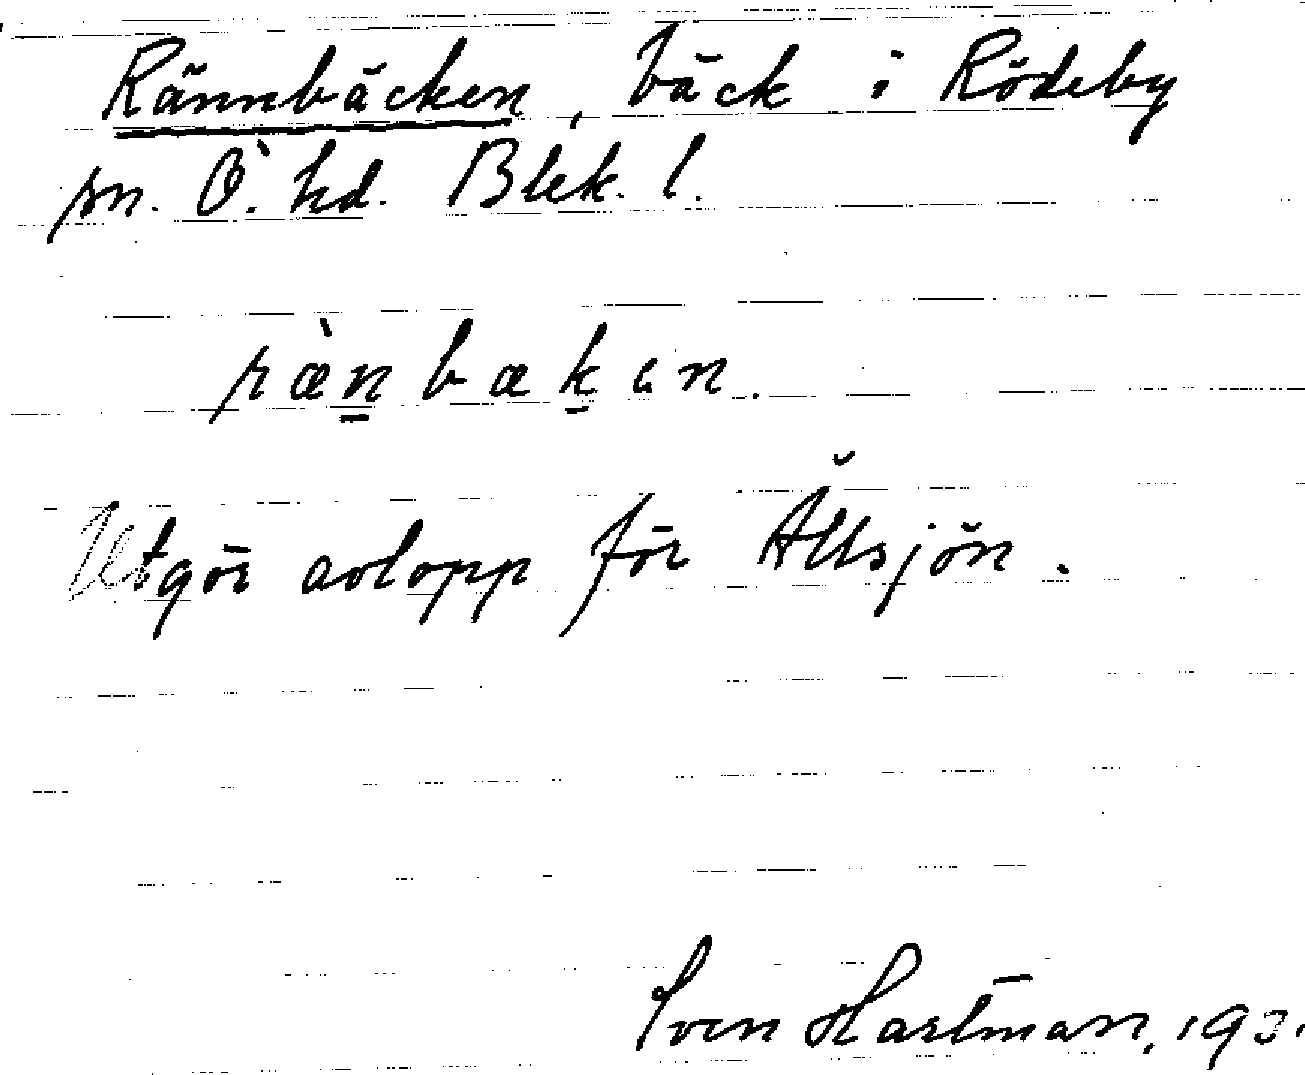 Rännbäcken, bäck i Rödeby
sn. Ö. hd. Blek. l.
ræ̀n̲bæk̲ɩn.
Utgör avlopp för Ällsjön.
Sven Hartman, 193